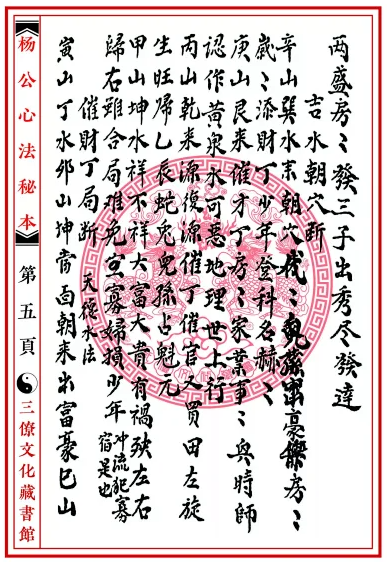 两盛房〻發三子出秀尽發達
吉水朝穴断
辛山巽水来朝穴代〻兒孫出豪傑房〻
歲〻添財丁少年登科名赫〻
庚山艮来催才丁房〻家業事〻興時師
認作黄泉水可惡地理世上行
丙山乾来源復源催丁催官又買田左旋
生旺帰乙辰蛇兎兒孫占魁元
甲山坤水祥不祥大富大貴有禍殃左右
歸右雖合局难免寡婦損少年 冲流犯寡宿是也
催財丁局断 天德水法
寅山丁水邜山坤當面朝来出富豪巳山
杨公心法秘本
第五頁
三僚文化藏書館